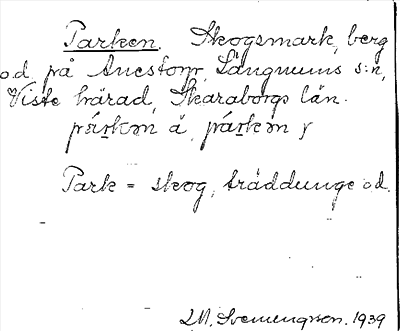 Parken. Skogsmark, berg
o.d. på Anestorp, Längnums s:n,
Viste härad, Skaraborgs län.
Park = skog, träddunge o d.
Svenungsson. 1939